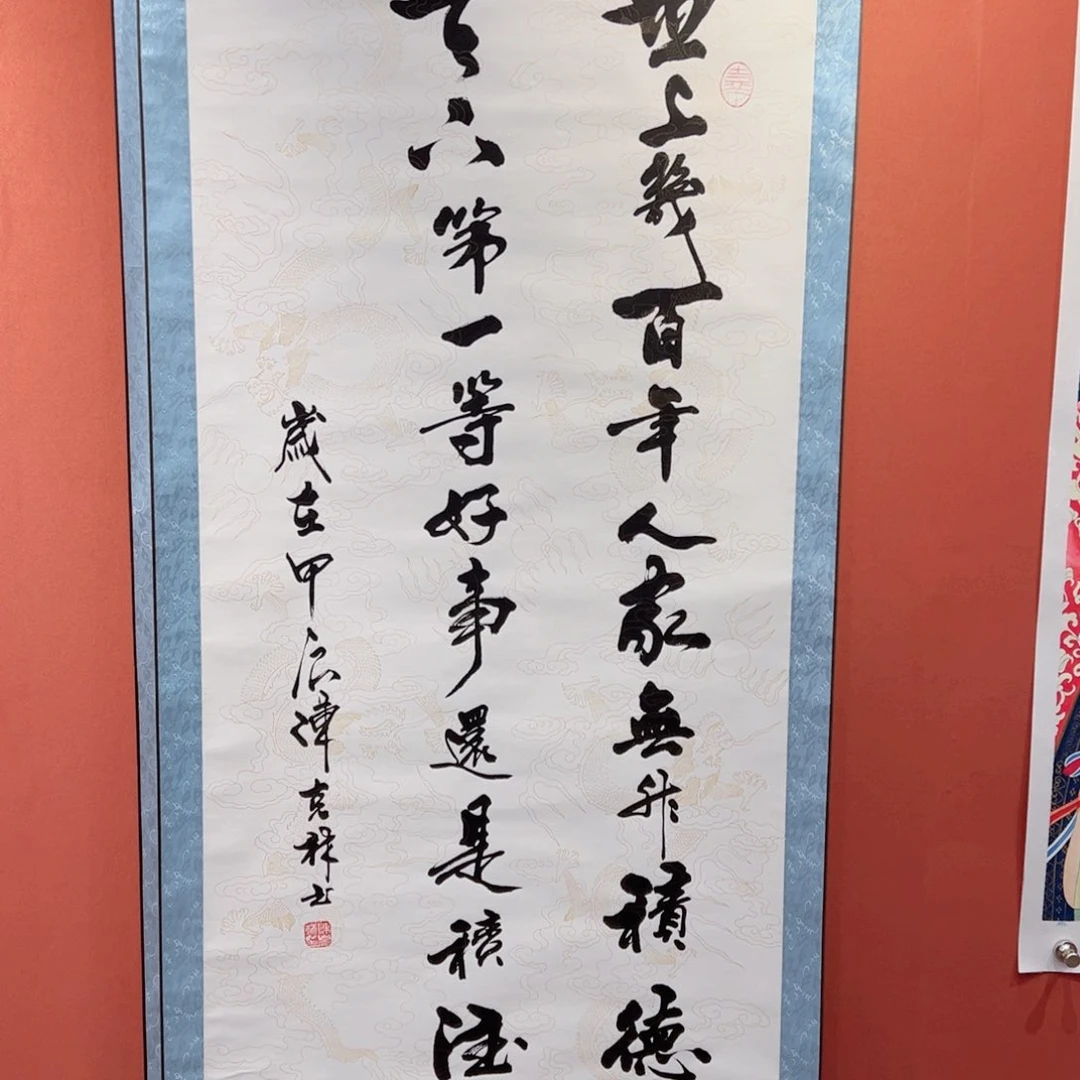 世上幾百年人家無非積德
天下第一等好事還是積德
歲在甲辰譚克祥书